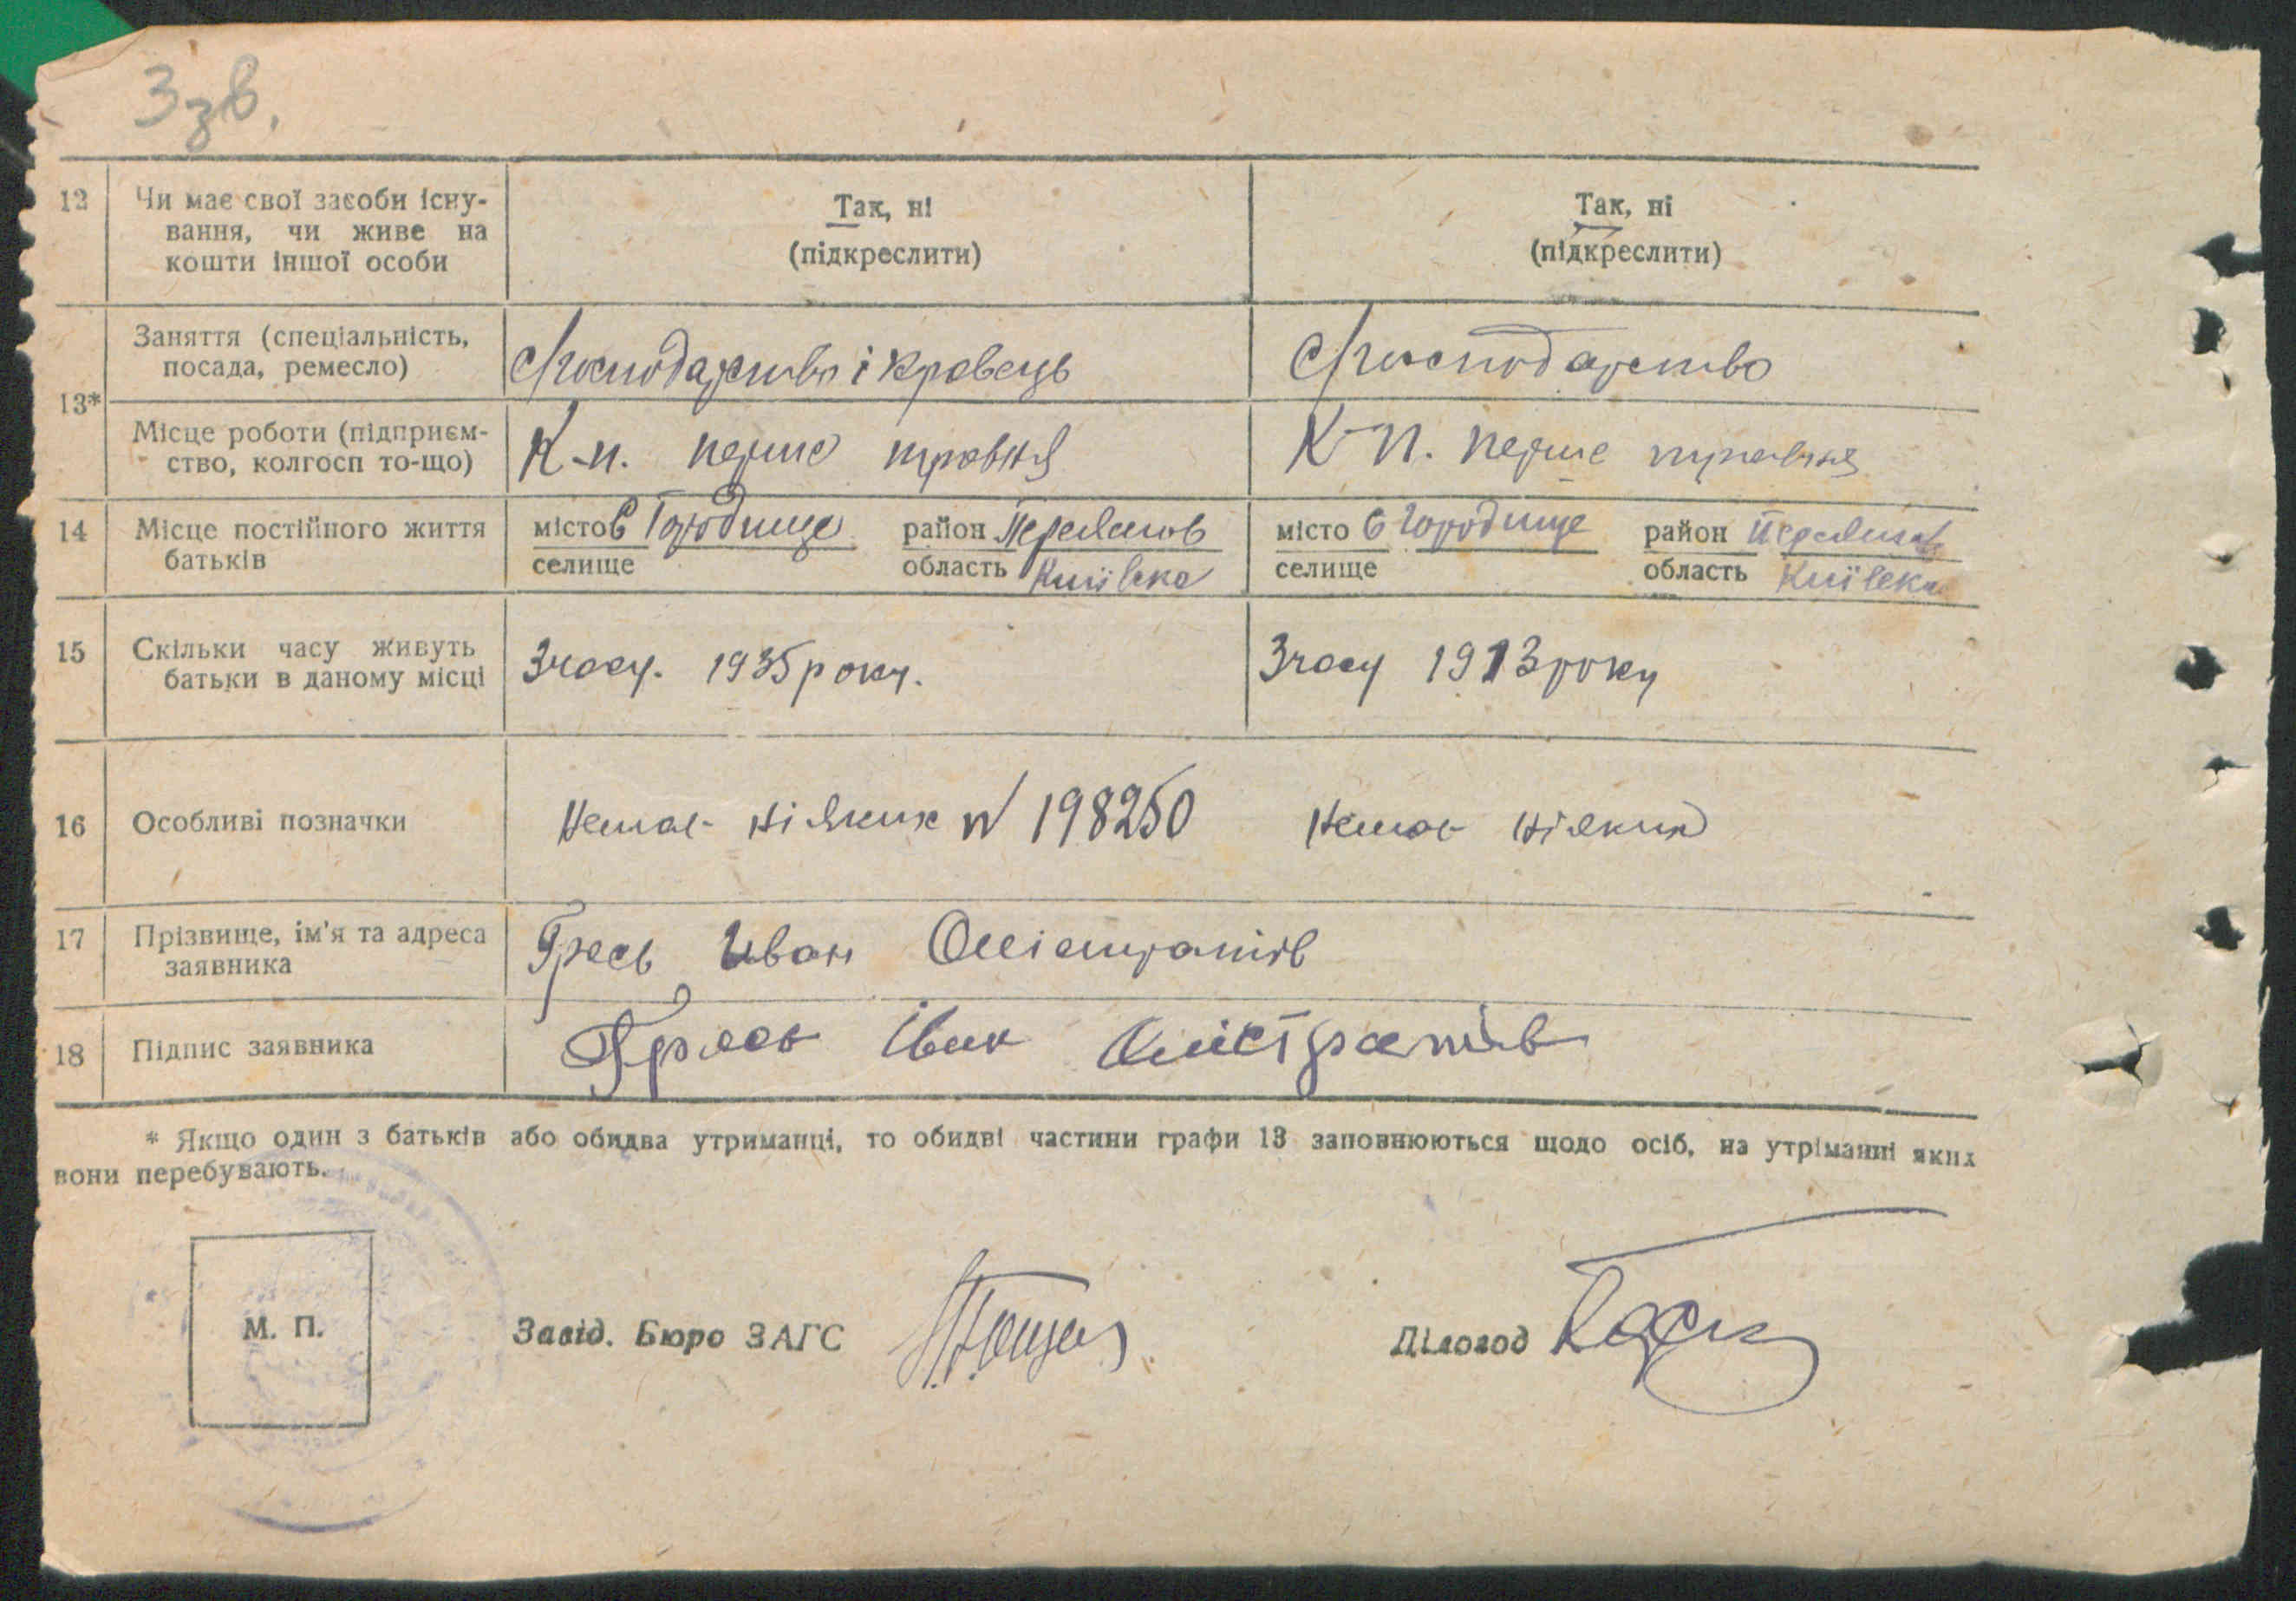 3 зв.
12 Чи має свої засоби існу-
вання, чи живе на
кошти іншої особи
Так, ні
(підкреслити)
Так, ні
(підкреслити)
13*
Заняття (спеціальність,
посада, ремесло)
Господарство і кравець
Господарство
Місце роботи (підприєм-
ство, колгосп то-що)
К-п. перше травня
К-п. перше травня
14 Місце постійного життя
батьків
місто с Городище район Переяслов
селище область Київска
місто с Городище район Переяслов
селище область Київска
15 Скільки часу живуть
батьки в даному місці
Зчасу. 1935 року.
Зчасу 1913 року
16 Особливі позначки
Немає ніяких № 198250
Немає ніяких
17 Прізвище, ім'я та адреса
заявника
Гресь Иван
18 Підпис заявника
Гресь Іван
* Якщо один з батьків або обидва утриманці, то обидві частини графи 13 заповнюються щодо осіб, на утріманні яких
вони перебувають.
М. П.
Завід. Бюро ЗАГС
Діловод